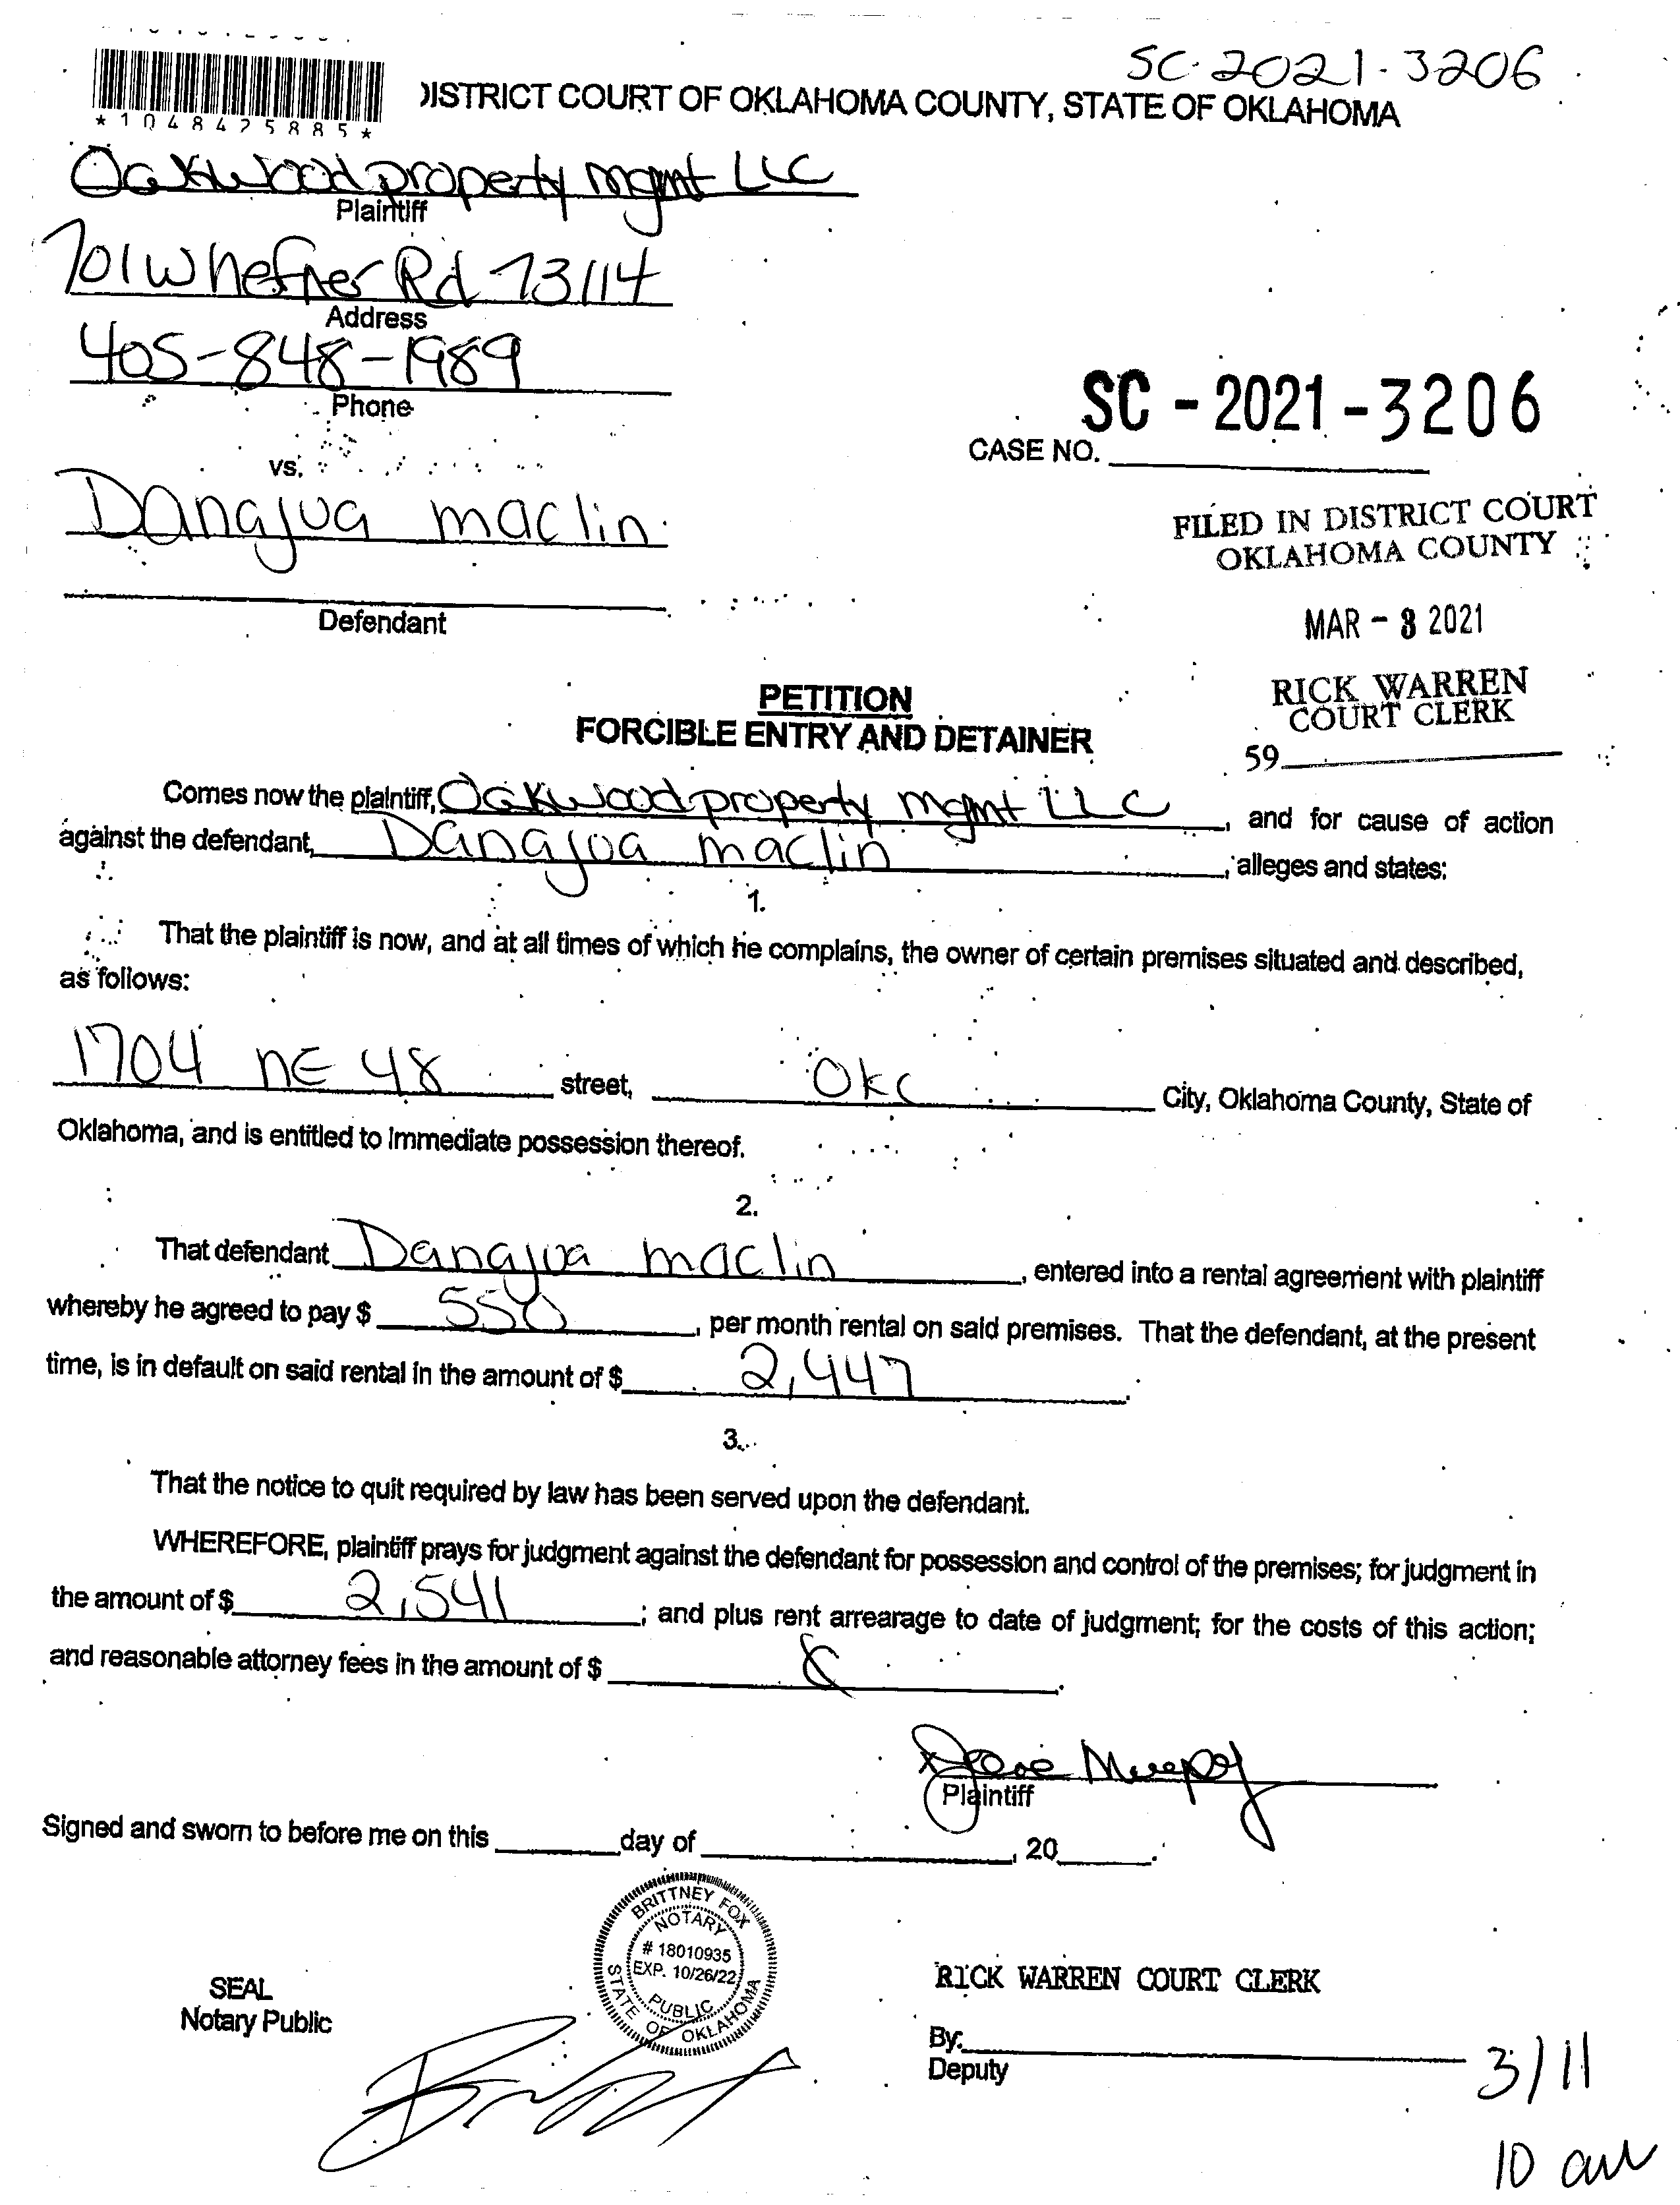 SC-2021-3206
*1048425885*
DISTRICT COURT OF OKLAHOMA COUNTY, STATE OF OKLAHOMA
Oakwood property mgmt LLC
Plaintiff
701 W hefner Rd 73114
Address
405-848-1989
Phone
SC-2021-3206
CASE NO.
vs.
Danajua maclin
Defendant
FILED IN DISTRICT COURT
OKLAHOMA COUNTY
MAR - 3 2021
RICK WARREN
COURT CLERK
59
PETITION
FORCIBLE ENTRY AND DETAINER
Comes now the plaintiff, Oakwood property mgmt LLC, and for cause of action
against the defendant, Danajua maclin, alleges and states:
1.
That the plaintiff is now, and at all times of which he complains, the owner of certain premises situated and described,
as follows:
1704 NE 48 street, OKC City, Oklahoma County, State of
Oklahoma, and is entitled to immediate possession thereof.
2.
That defendant Danajua maclin, entered into a rental agreement with plaintiff
whereby he agreed to pay $ 550, per month rental on said premises. That the defendant, at the present
time, is in default on said rental in the amount of $ 2,447.
3.
That the notice to quit required by law has been served upon the defendant.
WHEREFORE, plaintiff prays for judgment against the defendant for possession and control of the premises; for judgment in
the amount of $ 2,541; and plus rent arrearage to date of judgment; for the costs of this action;
and reasonable attorney fees in the amount of $
Plaintiff
Signed and sworn to before me on this day of , 20 .
BRITTNEY FOX
NOTARY
# 18010935
EXP. 10/26/22
PUBLIC
STATE OF OKLAHOMA
SEAL
Notary Public
RICK WARREN COURT CLERK
By:
Deputy
3/11
10 am